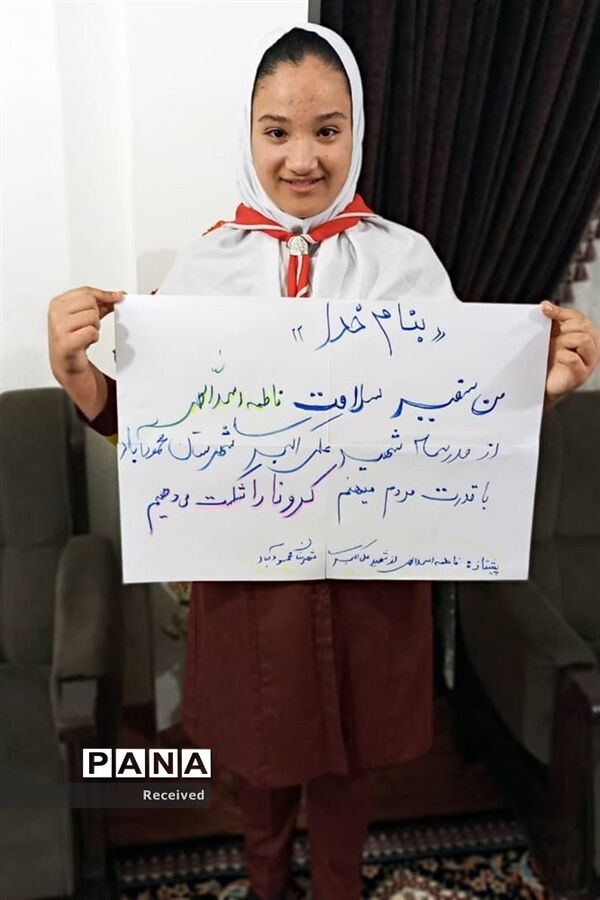 «بنام خدا»
من سفیر سلامت فاطمه اسدالهی
از مدرسه شهید علی اکبر شهرستان محمودآباد
با قدرت مردم میهنم کرونا را شکست می دهیم
پیشتاز: فاطمه اسدالهی از شهید علی اکبر شهرستان محمودآباد
PANA
Received